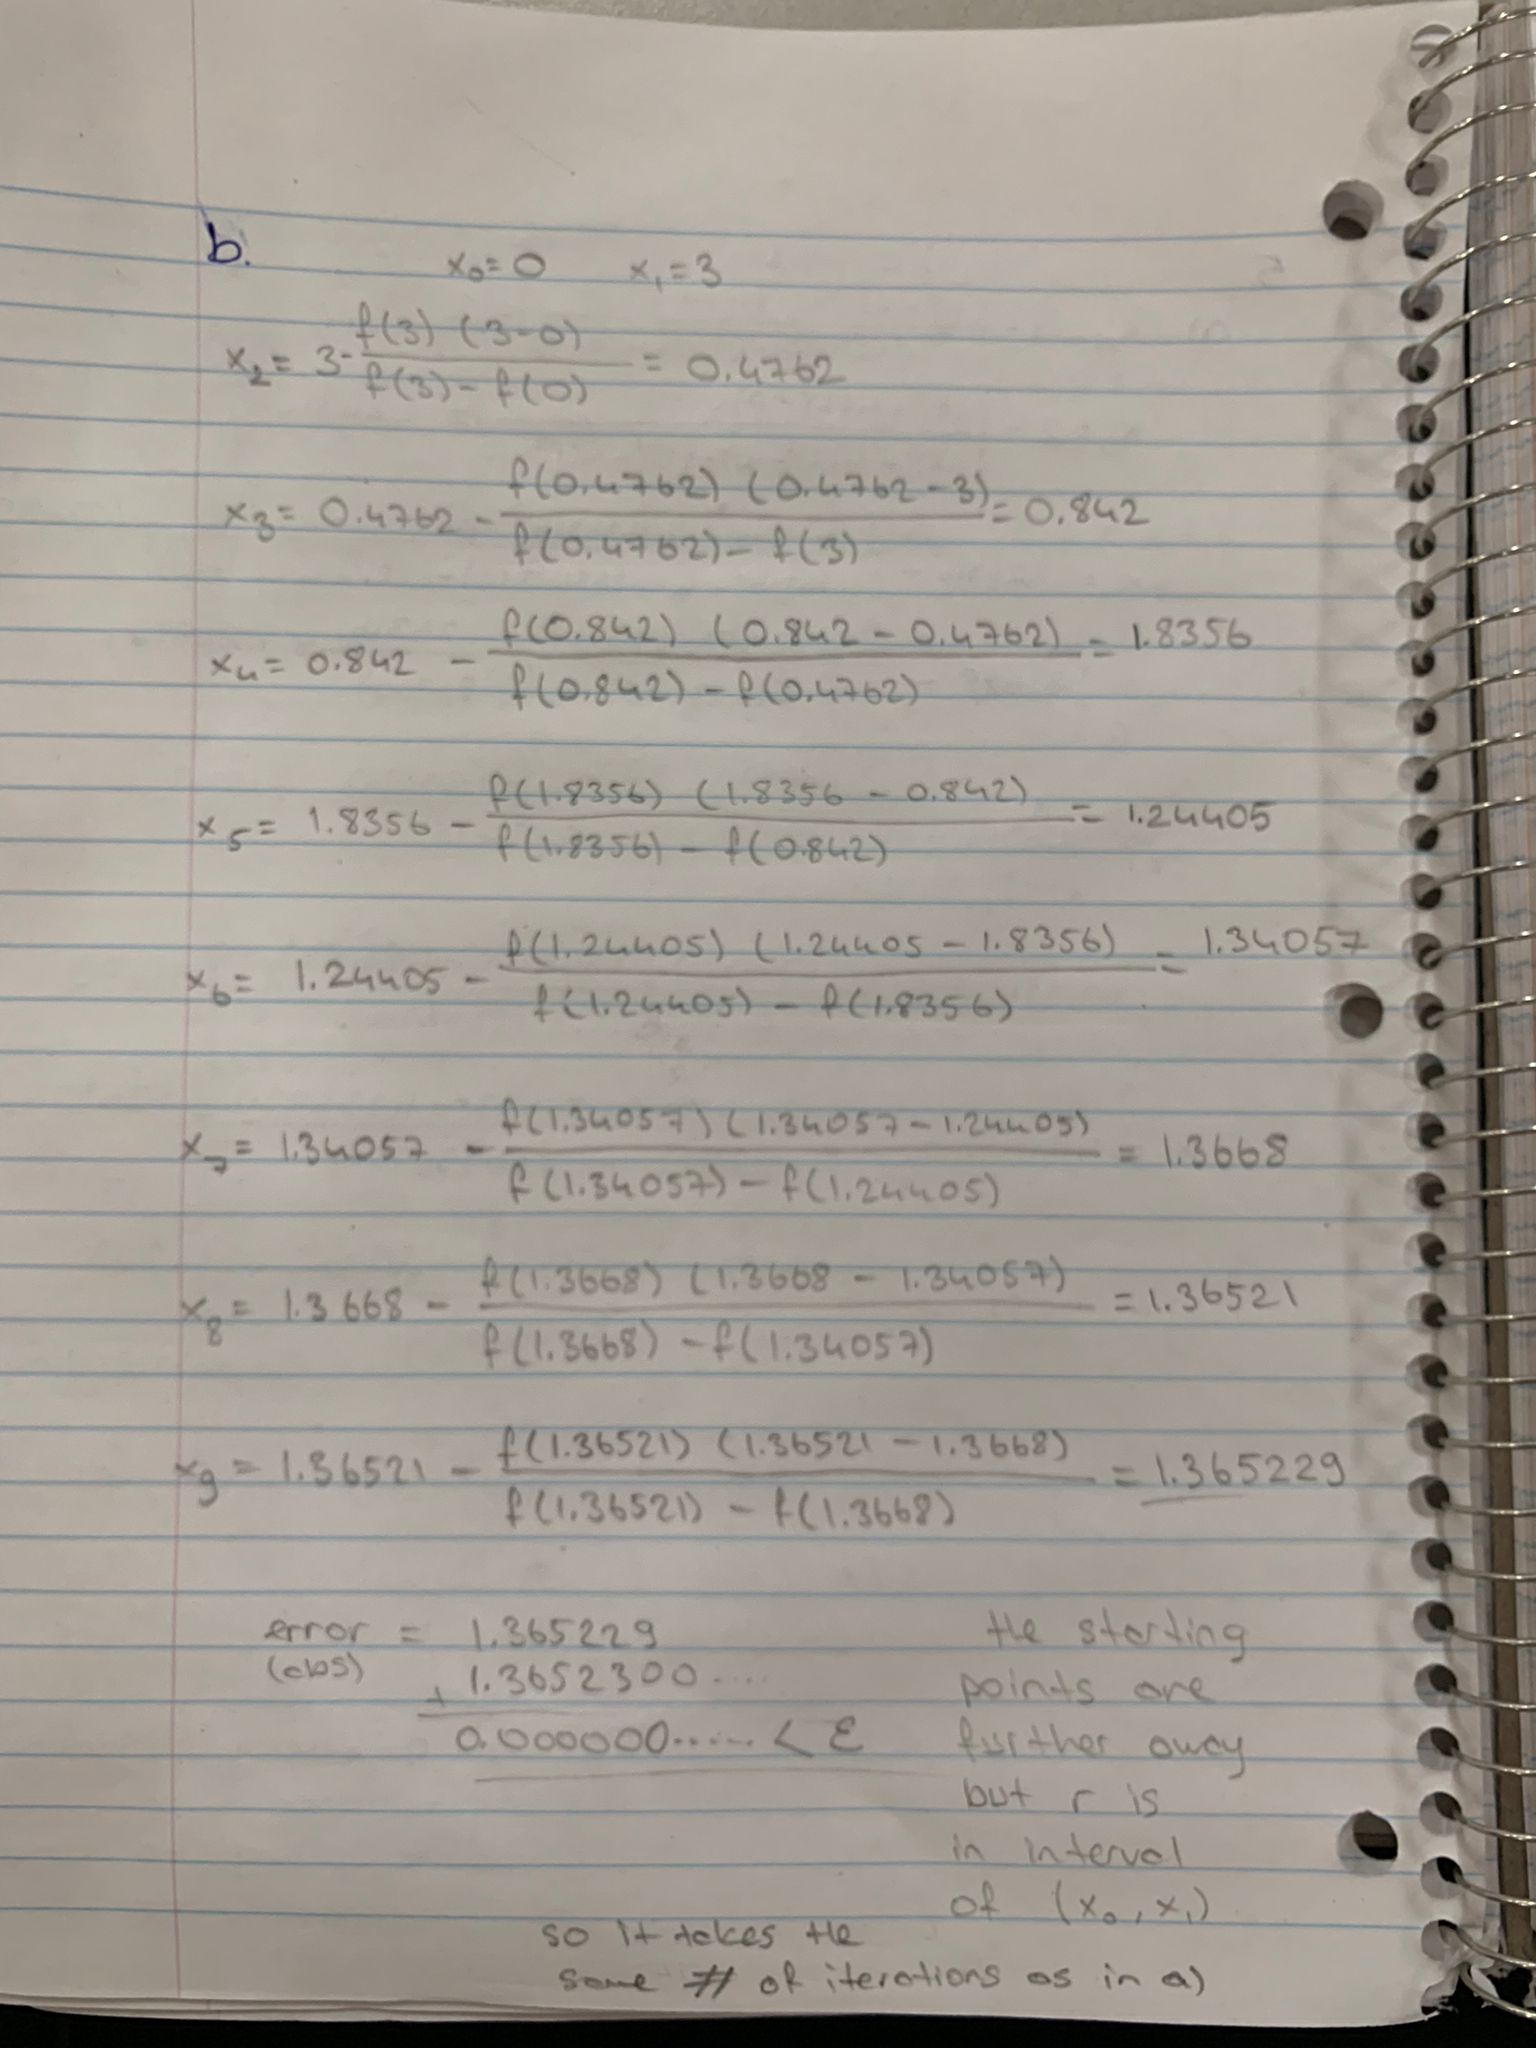 b.
x₀ = 0 x₁ = 3
x₂ = 3 - f(3) (3-0) / f(3) - f(0) = 0.4762
x₃ = 0.4762 - f(0.4762) (0.4762 - 3) / f(0.4762) - f(3) = 0.842
x₄ = 0.842 - f(0.842) (0.842 - 0.4762) / f(0.842) - f(0.4762) = 1.8356
x₅ = 1.8356 - f(1.8356) (1.8356 - 0.842) / f(1.8356) - f(0.842) = 1.24405
x₆ = 1.24405 - f(1.24405) (1.24405 - 1.8356) / f(1.24405) - f(1.8356) = 1.34057
x₇ = 1.34057 - f(1.34057) (1.34057 - 1.24405) / f(1.34057) - f(1.24405) = 1.3668
x₈ = 1.3668 - f(1.3668) (1.3668 - 1.34057) / f(1.3668) - f(1.34057) = 1.36521
x₉ = 1.36521 - f(1.36521) (1.36521 - 1.3668) / f(1.36521) - f(1.3668) = 1.365229
error = 1.365229
(abs) 1.3652300....
+
0.000000...... < ε
the starting
points are
further away
but r is
in interval
of (x₀, x₁)
so it takes the
same # of iterations as in a)